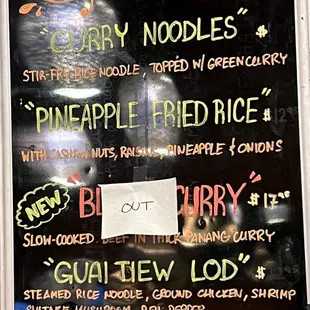 "CURRY NOODLES" $
STIR-FRY RICE NOODLE, TOPPED W/ GREEN CURRY
"PINEAPPLE FRIED RICE" $
WITH CASHEW NUTS, RAISINS, PINEAPPLE & ONIONS
NEW
CURRY" $
OUT
SLOW-COOKED BEEF IN THICK PANANG CURRY
"GUAI TIEW LOD" $
STEAMED RICE NOODLE, GROUND CHICKEN, SHRIMP
MUSHROOM,